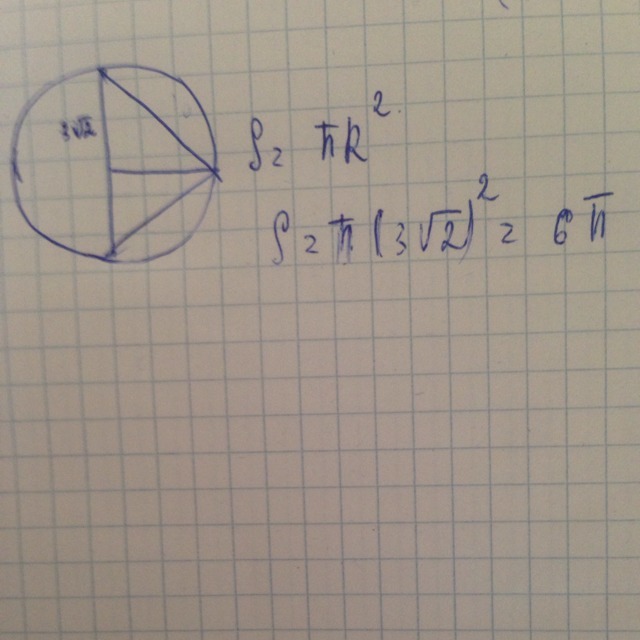 3√2
S = πR².
S = π (3√2)² = 6π